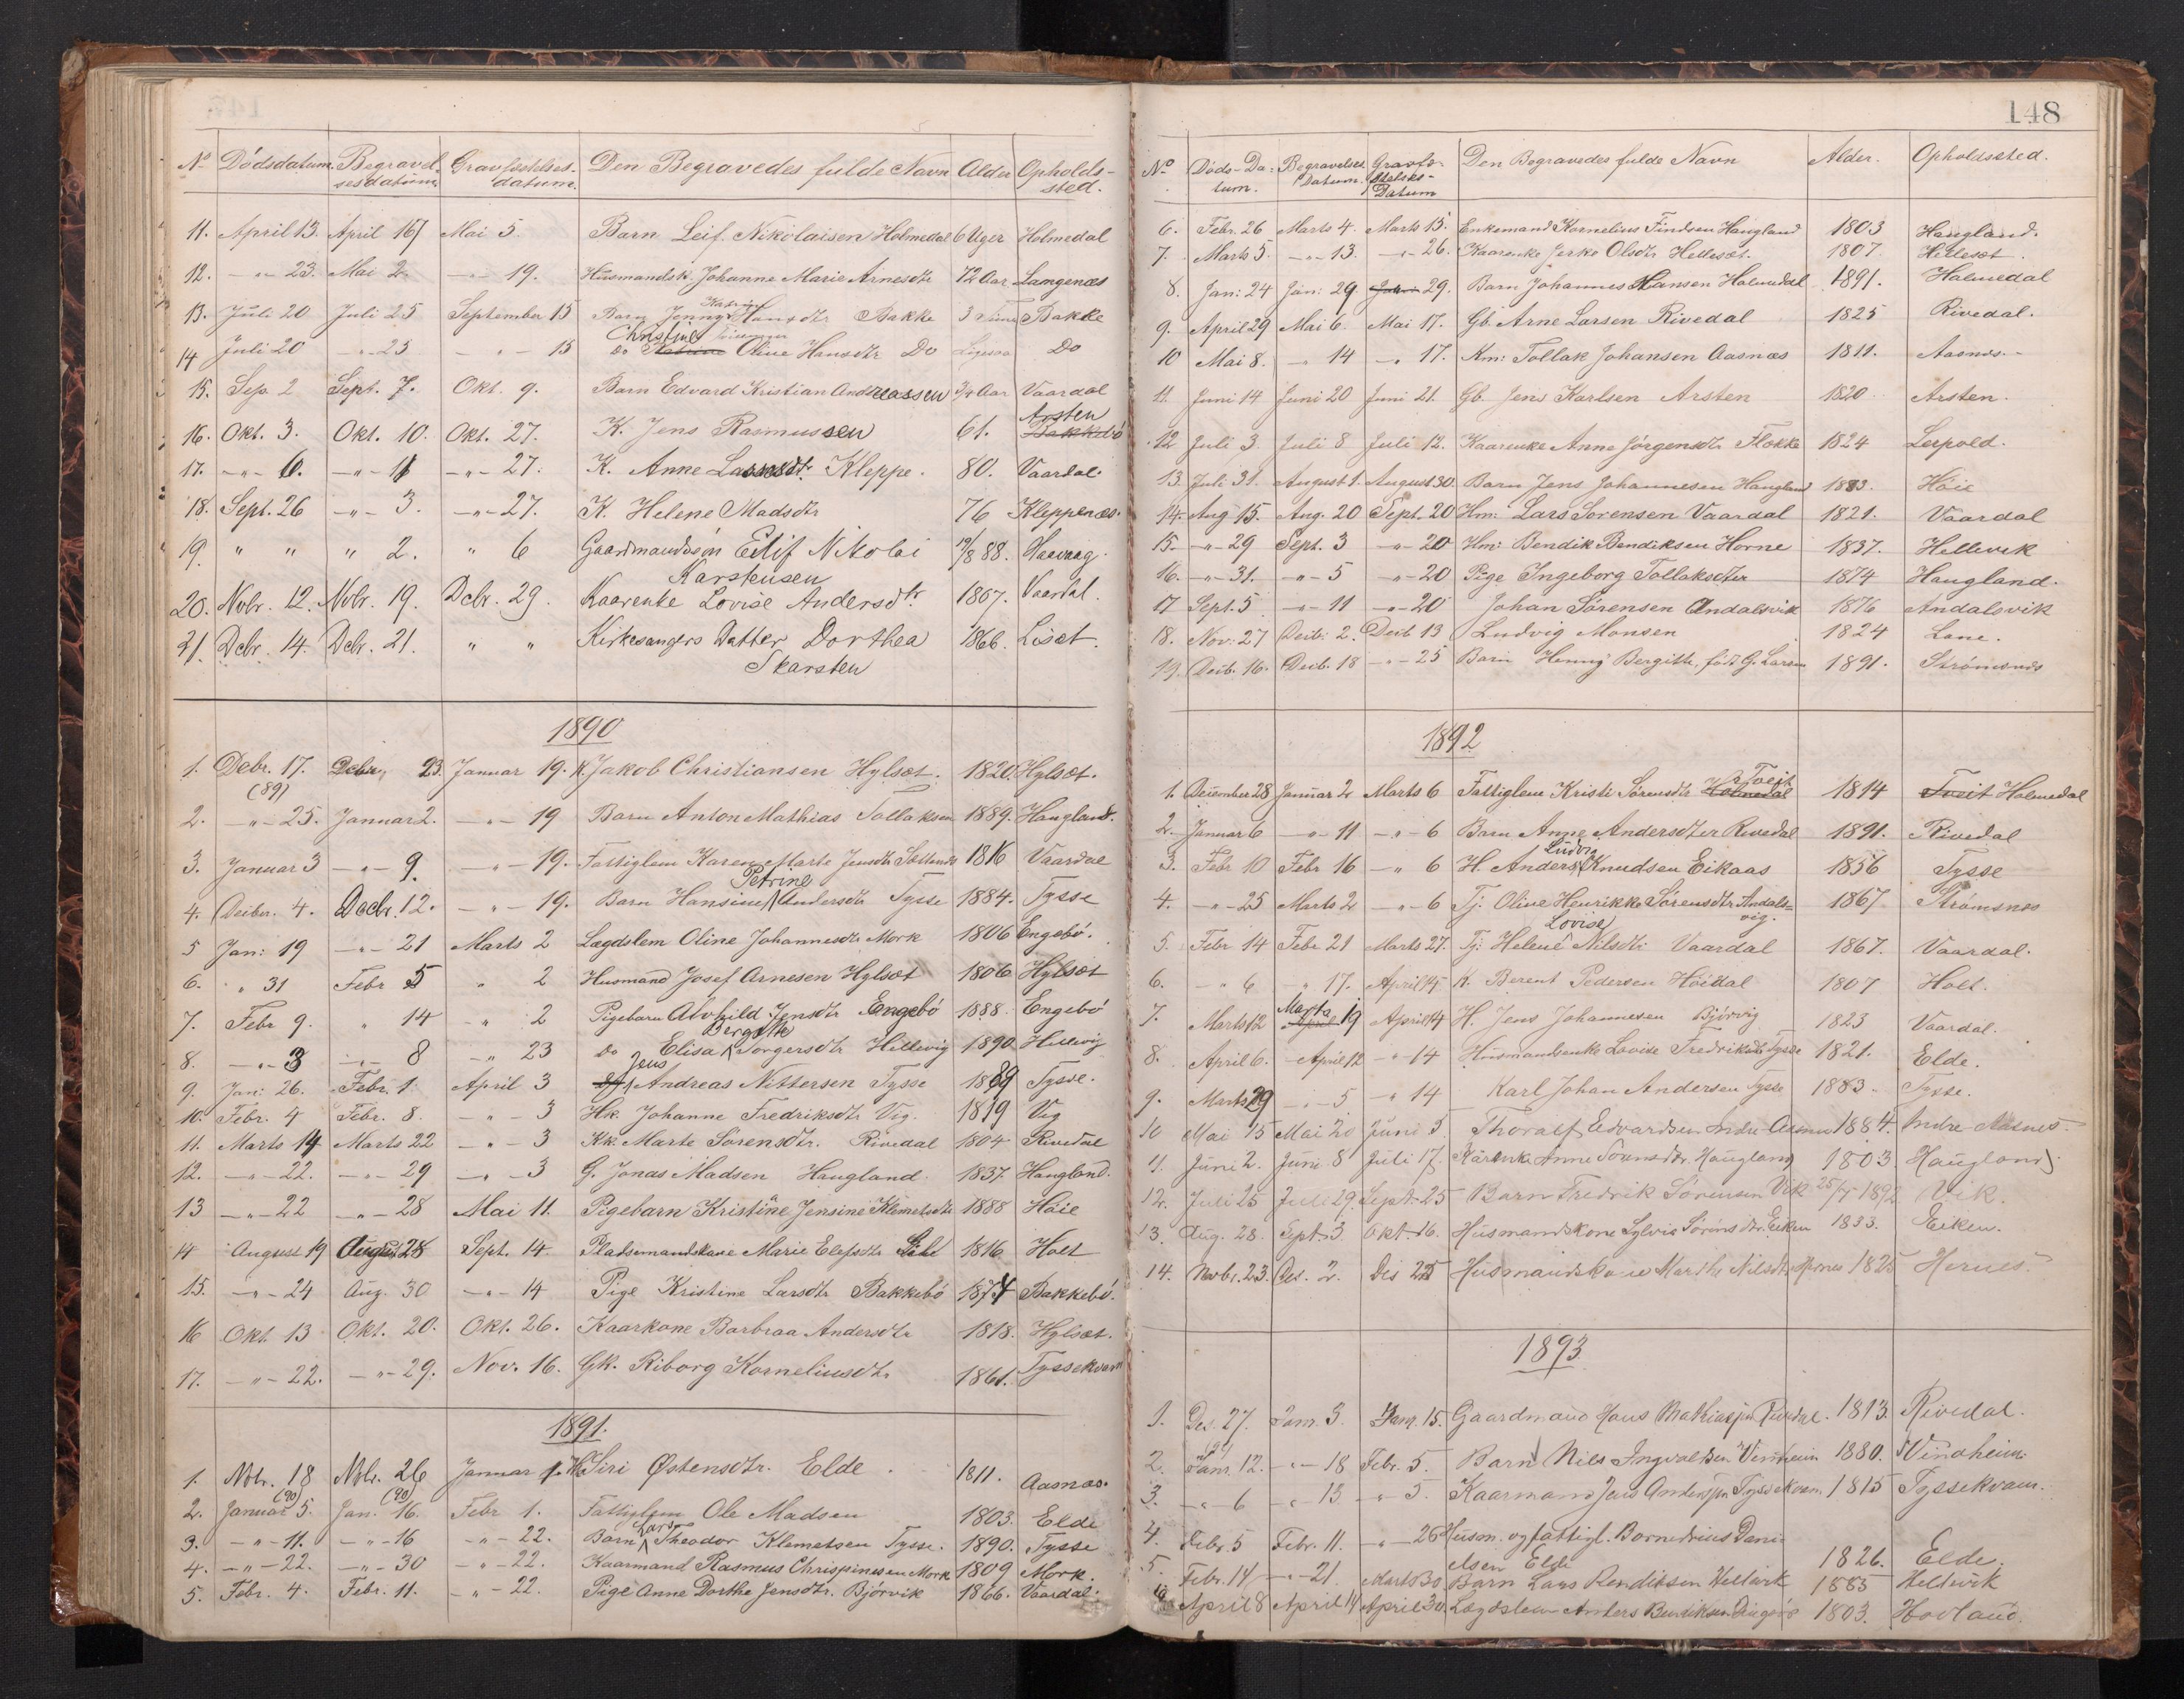 148
No Dödsdatum. Begravelsesdatum. Gravfæstelsesdatum. Den Begravedes fulde Navn Alder Opholdssted.
11. April 13. April 16 Mai 5. Barn Leif Nikolaisen Holmedal 6 Uger Holmedal
12. -"- 23. Mai 2. -"- 19. Husmandsk. Johanne Marie Arnesdtr 72 Aar Langenæs
13. Juli 20 Juli 25 September 15 Barn Jenny Katrine Hansdtr Bakke 3 Bakke
14 Juli 20 -"- 25 -"- 15 Do Christine Oline Hansdtr Do Ligesaa Do
15. Sep. 2 Sept. 7. Okt. 9. Barn Edvard Kristian Andreassen 3/4 Aar Vaardal
16. Okt. 3. Okt. 10. Okt. 27. K. Jens Rasmussen 61. Arsten Bakkebö
17. -"- 6. -"- 11 -"- 27. K. Anne Larsdtr. Kleppe. 80. Vaardal.
18. Sept. 26 -"- 3. -"- 27. K. Helene Madsdtr 76 Kleppenæs.
19. " " " 2. " 6 Gaardmandssøn Eilif Nikolai 19/8 88. Haavaag.
Karstensen
20. Nobr. 12. Nobr. 19. Debr. 29. Kaarenke Lovise Andersdtr. 1807. Vaardal.
21. Debr. 14. Debr. 21. " " Kirkesangers Datter Dorthea 1866. Liset.
Skarsten
1890
1. Debr. 17. Debr. 23. Januar 19. K. Jakob Christiansen Hylsæt. 1820. Hylsæt.
(89)
2. -"- 25. Januar 2. -"- 19 Barn Anton Mathias Tollaksen 1889. Haugland.
3. Januar 3 -"- 9. -"- 19. Fattiglem Karen Marte Jensdtr 1816 Vaardal
4. Deibr. 4. Decbr. 12. -"- 19. Barn Hansine Petrine Andersdtr Tysse 1884. Tysse
5 Jan: 19 -"- 21 Marts 2 Lægdslem Oline Johannesdtr Mork 1806 Engebö.
6. " 31 Febr 5 " 2 Husmand Josef Arnesen Hylsæt 1806 Hylsæt
7. Febr 9. " 14 -"- 2 Pigebarn Alvhild Jensdtr Engebö 1888. Engebö
8. -"- 3 -"- 8 -"- 23 Do Elisa Bergithe Torgersdtr Hillevig 1890. Hillevig
9. Jan: 26. Febr. 1. April 3 Jens Andreas Nittersen Tysse 1889 Tysse.
10. Febr. 4 Febr. 8. -"- 3 Hk. Johanne Fredriksdtr Vig. 1819 Vig
11. Marts 14 Marts 22 -"- 3 Kk. Marte Sörensdtr. Rivedal 1804 Rivedal
12. -"- 22. -"- 29 -"- 3 G. Jonas Madsen Haugland. 1837. Haugland.
13 -"- 22 -"- 28 Mai 11. Pigebarn Kristine Jensine Klemetsdtr 1888 Höie
14 August 19 August 28 Sept. 14 Pladsemandskone Marie Elefsdtr 1816 Holt
15. -"- 24 Aug. 30 -"- 14 Pige Kristine Larsdtr Bakkebö 1874 Bakkebö.
16 Okt. 13 Okt. 20. Okt. 26. Kaarkone Barbraa Andersdtr 1818. Hylsæt.
17. -"- 22. -"- 29. Nov. 16. Gk. Riborg Korneliusdtr 1861. Tyssekvam
1891.
1. Nobr. 18 Nobr. 26 Januar 1. Siri Østensdtr. Elde. 1811. Aasnæs.
(90) (90)
2. Januar 5. Jan. 16. Febr 1. Fattiglem Ole Madsen 1803. Elde
3. -"- 11. -"- 16 -"- 22. Barn Lars Theodor Klemetsen Tysse. 1890. Tysse
4. -"- 22. -"- 30 -"- 22. Kaarmand Rasmus Chrispinesen Mork 1809 Mork.
5. Febr. 4. Febr. 11. -"- 22. Pige Anne Dorthe Jensdtr. Björvik 1866. Vaardal.
No Döds-Datum. Begravelses Datum. Gravfæstelses-Datum Den Begravedes fulde Navn Alder. Opholdssted.
6. Febr. 26 Marts 4. Marts 15. Enkemand Kornelius Findsen Haugland 1803 Haugland.
7. Marts 5. -"- 13. -"- 26. Kaarenke Jerke Olsdtr Hellesæt. 1807. Hillesæt.
8. Jan: 24 Jan: 29 29. Barn Johannes Hansen Holmedal 1891. Holmedal
9. April 29 Mai 6. Mai 17. Gb. Arne Larsen Rivedal 1825 Rivedal.
10 Mai 8. -"- 14 -"- 17. Km: Tollak Johansen Aasnæs 1811. Aasnæs.
11. Juni 14 Juni 20 Juni 21. Gb. Jens Karlsen Arsten 1820 Arsten.
12 Juli 3 Juli 8 Juli 12. Kaarenke Anne Jörgensdtr Flokke 1824 Lepold.
13. Juli 31. August 1. August 30. Barn Jens Johannesen Haugland 1883. Höie
14. Aug 15. Aug. 20 Sept. 20 Hm: Lars Sorensen Vaardal 1821. Vaardal
15. -"- 29 Sept. 3 -"- 20 Hm: Bendik Bendiksen Horne 1837. Hellevik
16. -"- 31. -"- 5 -"- 20 Pige Ingeborg Tollaksdtter 1874 Haugland.
17 Sept. 5 -"- 11 -"- 20 Johan Sörensen Andalsvik 1876 Andalsvik
18. Nov. 27 Decb: 2. Decb 13 Ludvig Monsen 1824 Lane.
19. Decb. 16. Decb. 18 -"- 25 Barn Henny Bergitte, født G. Larsen 1891. Strömsnæs
1892
1. December 28 Januar 2 Marts 6 Fattiglem Kristi Sörensdtr Holmedal Tveit 1814 Tveit Holmedal
2. Januar 6 -"- 11 -"- 6 Barn Anne Andersdtter Rivedal 1891. Rivedal
3. Febr 10 Febr 16 -"- 6 H. Anders Ludvig Knudsen Eikaas 1856 Tysse
4. -"- 25 Marts 2 -"- 6 Tj: Olive Henrikke Sörensdtr Andalsvig. 1867 Strömsnæs
5. Febr 14 Febr 21 Marts 27. Tj: Helene Lovise Nilsdtr Vaardal 1867. Vaardal.
6. -"- 6 -"- 17. April K. Berent Pedersen Höidal 1807 Holt.
7. Marts 12 Marts April 19 April 14 H. Jens Johannesen Björvig 1823 Vaardal.
8. April 6. April 12 -"- 14 Husmandsenke Lovise Fredriksdtr Tysse 1821. Elde.
9. Marts 29 -"- 5 -"- 14 Karl Johan Andersen Tysse 1883. Tysse.
10 Mai 15 Mai 20 Juni 5 Thoralf Edvardsen Indre Aasnæs 1884. Indre Aasnes.
11. Juni 2. Juni 8 Juli 17. Karenke Anne Haugland 1803. Haugland
12. Juli 25 Juli 29. Sept. 25 Barn Fredrik Sörensen Vik 1892 Vik.
13. Aug. 28. Sept. 3. Okt. 16. Husmandskone Sylvia Sörensdtr. Eiken 1833. Eiken.
14. Novbr. 23. Des. 2. Des 25 Husmandskone Marthe Nilsdtr Hornes 1825 Hornes.
1893
1. Des. 27. Jam. 3. Jam. 15. Gaardmand Hans Mathiassen Rivedal. 1813. Rivedal.
2. Jam. 12. -"- 18 Febr. 5. Barn Nils Ingvaldsen Vinnheim 1880. Vindheim.
3. -"- 6 -"- 13 -"- 5. Kaarmand Jens Anderssen Tyssekvam 1815 Tyssekvam.
4. Febr. 5 Febr. 11. -"- 26 Husm. og fattigl. Bornedrius Dani-
elsen Elde 1826. Elde.
5. Febr. 14 -"- 21. Marts 30. Barn Lars Bendiksen Hellevik 1885 Hellevik
6 April 8 April 14 April 30. Lægdslem Anders Bendiksen 1803. Hovland.